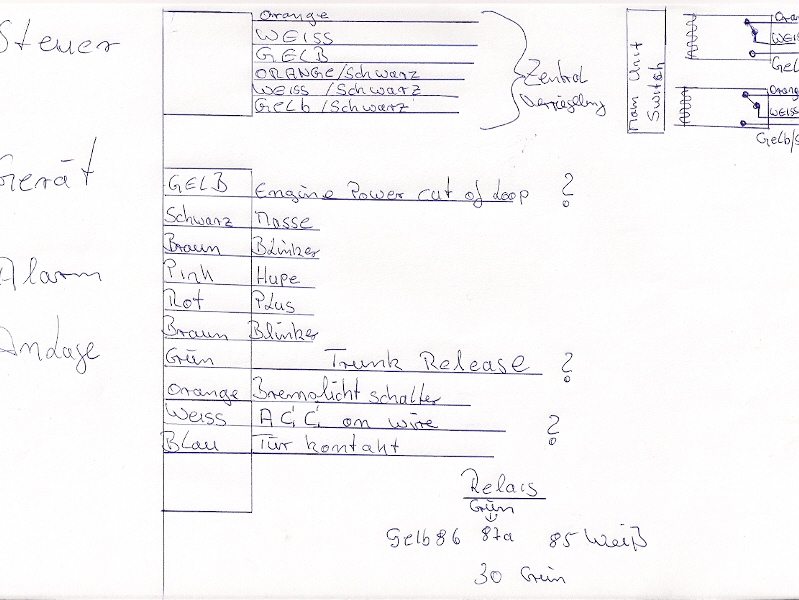 Steuer
Gerät
Alarm
Anlage
Orange
WEISS
GELB
ORANGE/Schwarz
WEISS /Schwarz
Gelb /Schwarz
Zentral
Verriegelung
Main Unit
Switch
Oran
WEIS
Gel
Orang
WEISS
Gelb/s
GELB Engine Power cut of loop ?
Schwarz Masse
Braun Blinker
Pink Hupe
Rot Plus
Braun Blinker
Grün Trunk Release ?
Orange Bremslicht schalter
Weiss ACC on wire ?
BLau Tür kontakt
Relais
Grün
Gelb 86 87a 85 Weiß
30 Grün